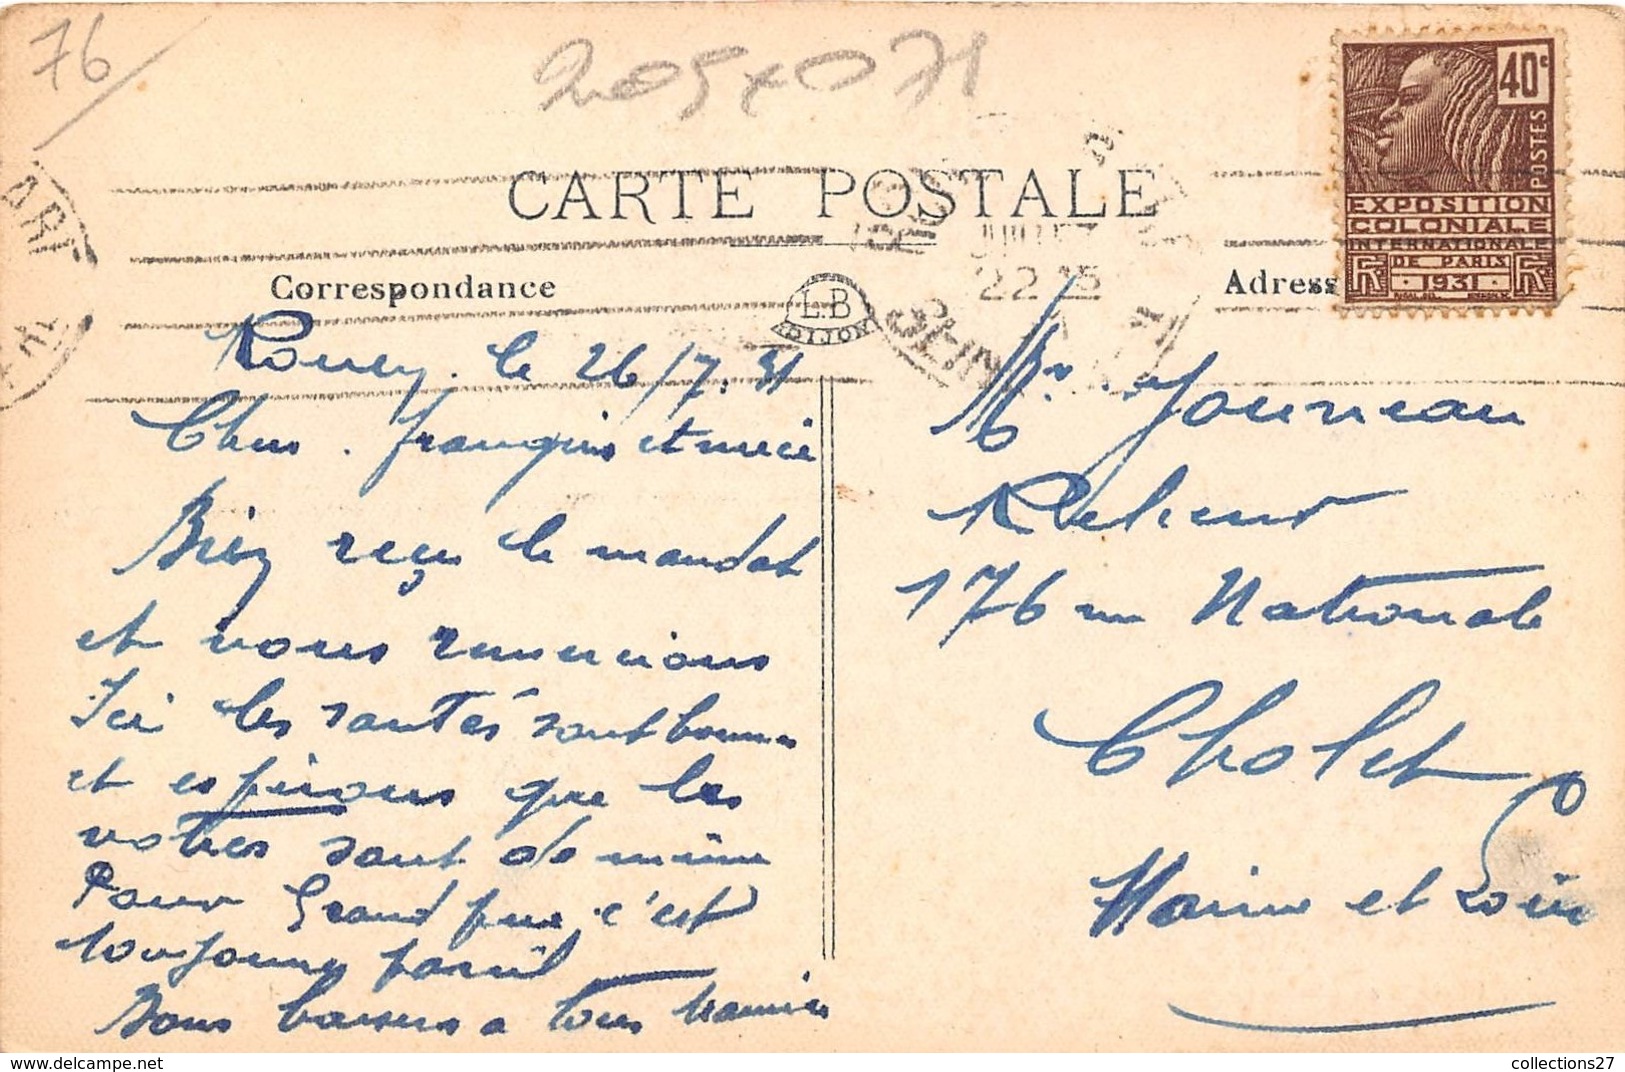 76
CARTE POSTALE
Correspondance
Adress
L.B
DIJON
JUILLET
22 15
40c
POSTES
EXPOSITION
COLONIALE
INTERNATIONALE
DE PARIS
RF 1931 RF
Rouen. le 26/7.31
Chers. françois et nièce
Bien reçu le mandat
et vous remercions
Ici les santés sont bonnes
et espérons que les
votres sont de même
Pour Grand père c'est
toujours pareil
Bons baisers a tous
Mr. Jouneau
Relieur
176 rue Nationale
Cholet
Maine et Loire
collections27